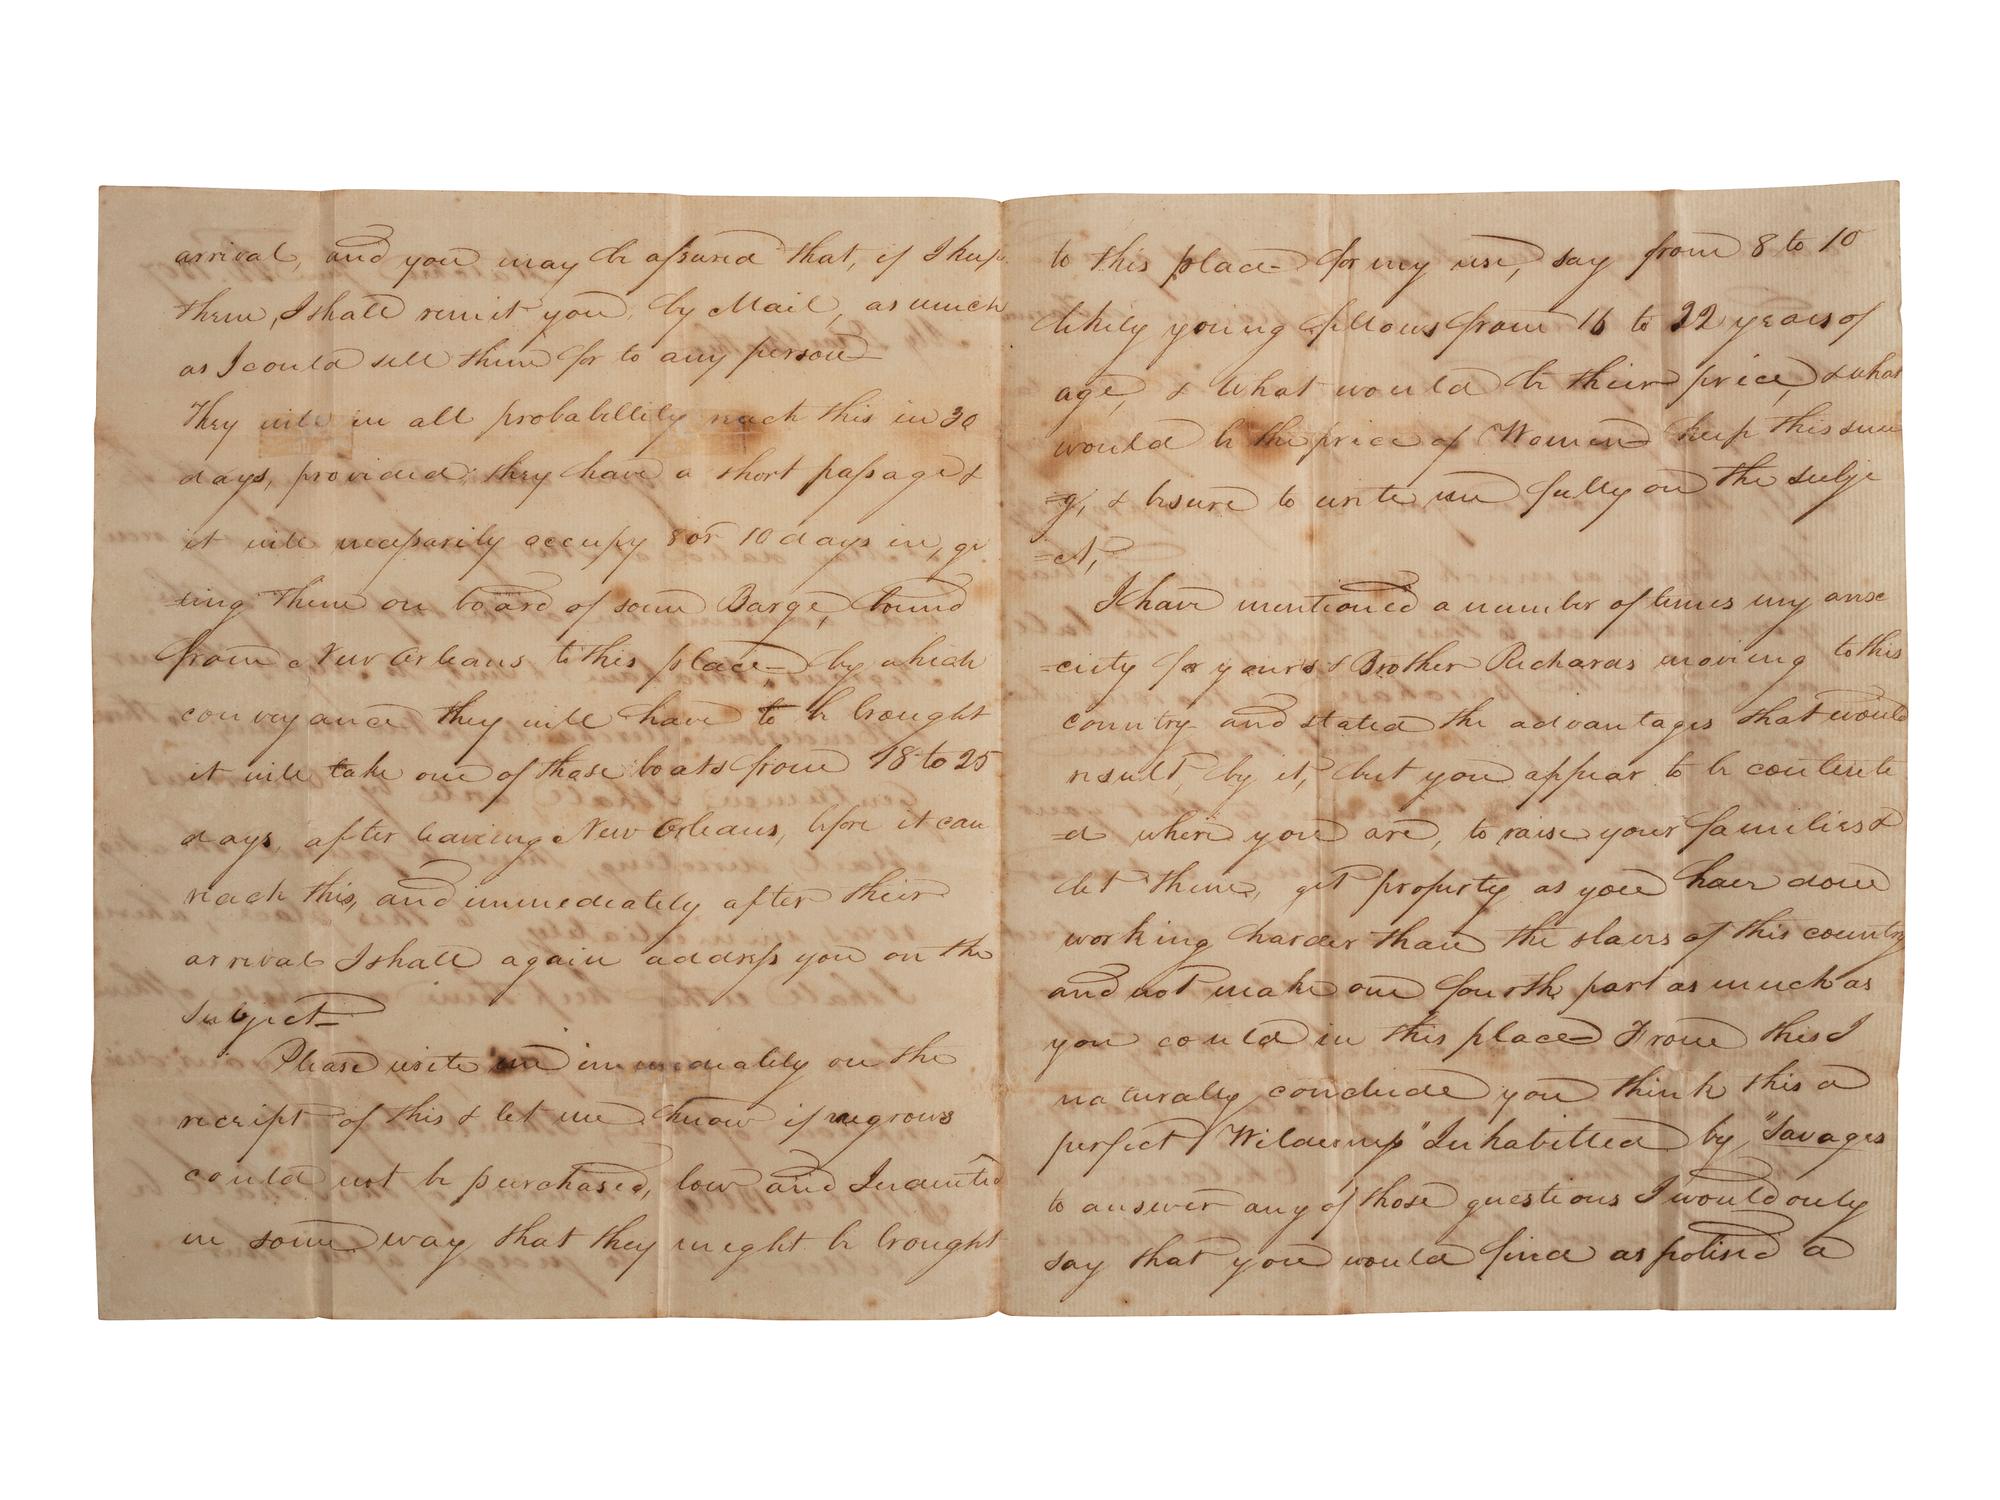 arrival, and you may be assured that, if I keep
them, I shall remit you, by Mail, as much
as I could sell them for to any person
They will in all probabillity reach this in 30
days, provided they have a short passage &
it will necessarily occupy 8 or 10 days in, ge
ting them on board of some Barge, bound
from New Orleans to this place, by which
conveyance they will have to be brought
it will take one of those boats from 18 to 25
days, after leaving New Orleans, before it can
reach this, and immediately after their
arrival I shall again address you on the
Subject
Please write me immediately on the
receipt of this & let me know if negrows
could not be purchased, low and Indented
in some way that they meght be brought
to this place for my use, say from 8 to 10
likily young fellows from 16 to 22 years of
age, & what would be their price, & what
would be the price of Women keep this
& be sure to write me fully on the subje
=ct,
I have mentioned a number of times my anxe
=eity for yours & Brother Richards moving to this
country and stated the advantages that would
result, by it, but you appear to be contente
=d where you are, to raise your families &
let them, get property as you have done
working harder than the slaves of this country
and not make one fourth part as much as
you could in this place From this I
naturally conclude you think this a
perfect Wilderness "Inhabitted by "Savages
to answer any of those questions I would only
say that you would find as polised a